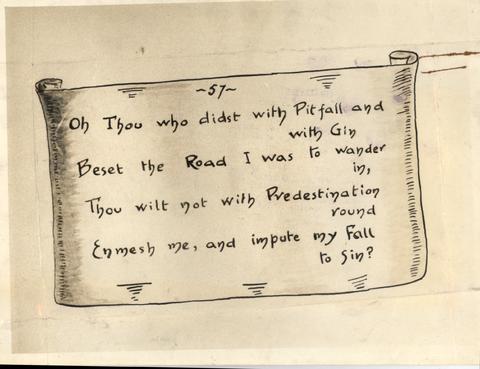 ~57~
Oh Thou who didst with Pitfall and
with Gin
Beset the Road I was to wander
in,
Thou wilt not with Predestination
round
Enmesh me, and impute my Fall
to Sin?